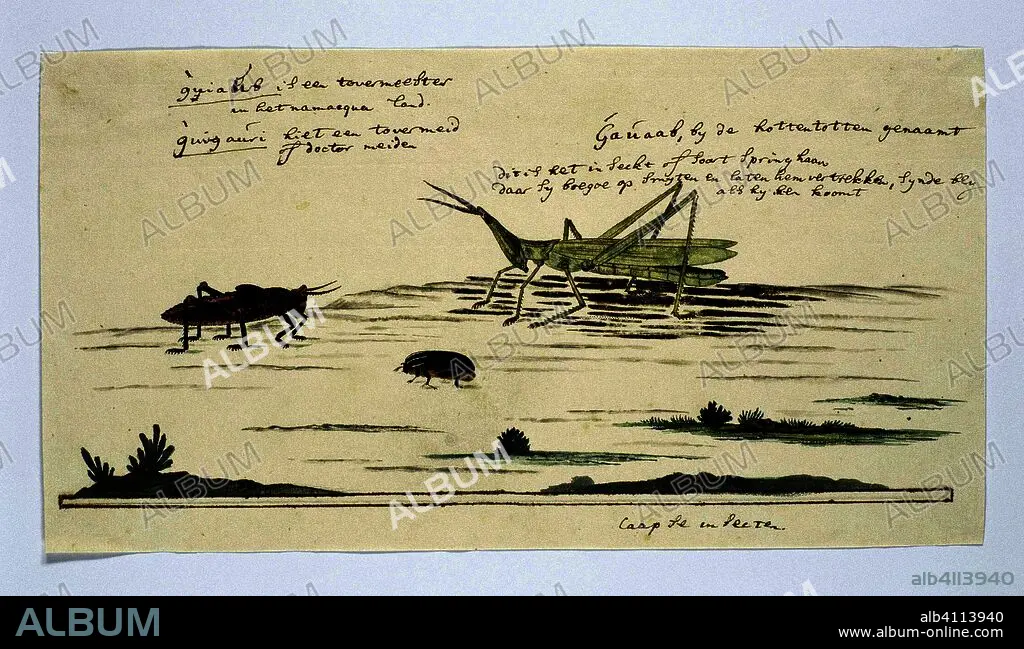 gʻuiaéb is een tovermeester
in het namacqua land.
gʻuigauri hiet een tovermeid
of doctor meiden
Gauaab, by de hottentotten genaamt
dit is het inseckt of soort springhaan
daar sy boegoe op en laten hem vertrekken, synde bly
als hy koomt
Caapse insecten.
ALBUM
alb4113940
ALBUM
alb4113940
www.album-online.com